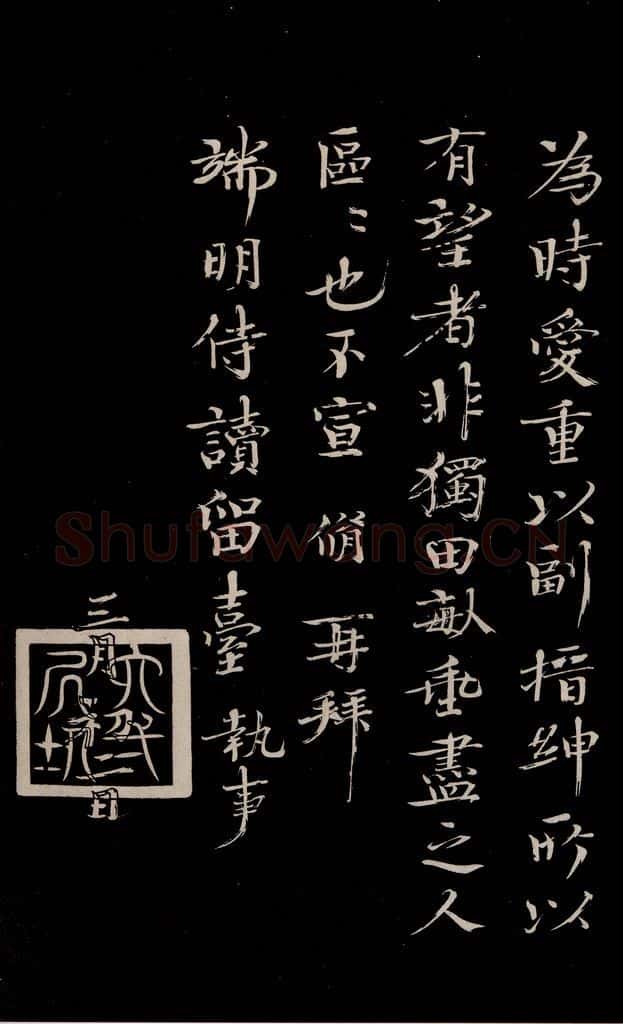 為時愛重以副搢紳所以
有望者非獨田畝垂盡之人
區〻也不宣 脩 再拜
端明侍讀留臺 執事
三月 日
Shufawang.CN